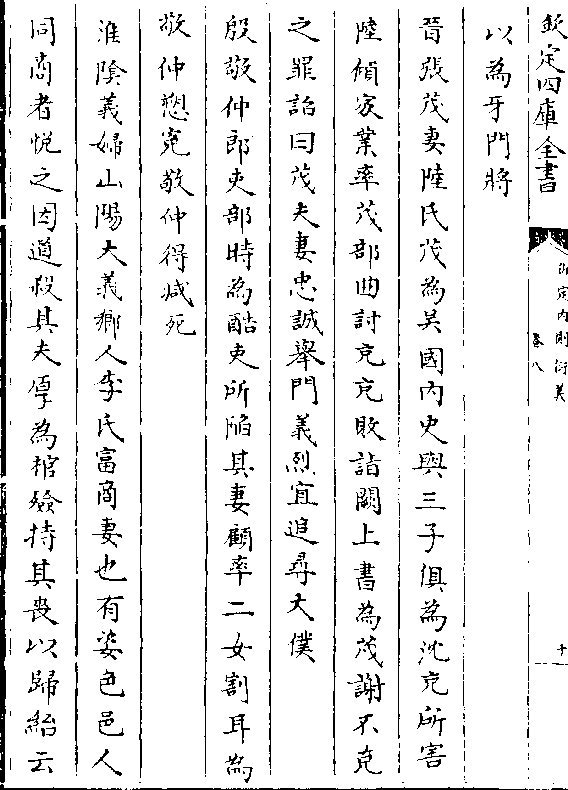 欽定四庫全書
御定內則衍義
卷八
十
以為牙門將
晉張茂妻陸氏茂為吳國內史與三子俱為沈充所害
陸傾家業率茂部曲討充充敗詣闕上書為茂謝不克
之罪詔曰茂夫妻忠誠舉門義烈宜追尋太僕
殷敬仲郎吏部時為酷吏所陷其妻顧率二女割耳為
敬仲愬寃敬仲得減死
淮陰義婦山陽大義鄉人李氏富商妻也有姿色邑人
同商者悅之因道殺其夫厚為棺殮持其喪以歸紿云